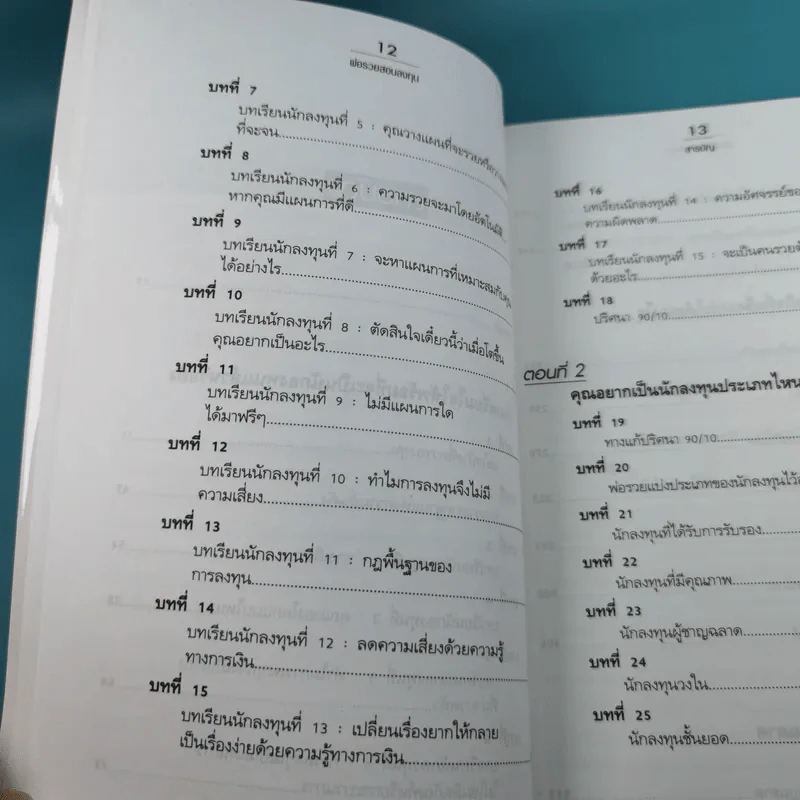 12
พ่อรวยสอนลงทุน
บทที่ 7
บทเรียนนักลงทุนที่ 5 : คุณวางแผนที่จะรวยหรือ
ที่จะจน
บทที่ 8
บทเรียนนักลงทุนที่ 6 : ความรวยจะมาโดยอัตโนมัติ
หากคุณมีแผนการที่ดี
บทที่ 9
บทเรียนนักลงทุนที่ 7 : จะหาแผนการที่เหมาะสมกับคุณ
ได้อย่างไร
บทที่ 10
บทเรียนนักลงทุนที่ 8 : ตัดสินใจเดี๋ยวนี้ว่าเมื่อโตขึ้น
คุณอยากเป็นอะไร
บทที่ 11
บทเรียนนักลงทุนที่ 9 : ไม่มีแผนการใด
ได้มาฟรีๆ
บทที่ 12
บทเรียนนักลงทุนที่ 10 : ทำไมการลงทุนจึงไม่มี
ความเสี่ยง
บทที่ 13
บทเรียนนักลงทุนที่ 11 : กฎพื้นฐานของ
การลงทุน
บทที่ 14
บทเรียนนักลงทุนที่ 12 : ลดความเสี่ยงด้วยความรู้
ทางการเงิน
บทที่ 15
บทเรียนนักลงทุนที่ 13 : เปลี่ยนเรื่องยากให้กลาย
เป็นเรื่องง่ายด้วยความรู้ทางการเงิน
13
สารบัญ
บทที่ 16
บทเรียนนักลงทุนที่ 14 : ความอัศจรรย์ของ
ความผิดพลาด
บทที่ 17
บทเรียนนักลงทุนที่ 15 : จะเป็นคนรวย
ด้วยอะไร
บทที่ 18
ปริศนา 90/10
ตอนที่ 2
คุณอยากเป็นนักลงทุนประเภทไหน
บทที่ 19
ทางแก้ปริศนา 90/10
บทที่ 20
พ่อรวยแบ่งประเภทของนักลงทุนไว้
บทที่ 21
นักลงทุนที่ได้รับการรับรอง
บทที่ 22
นักลงทุนที่มีคุณภาพ
บทที่ 23
นักลงทุนผู้ชาญฉลาด
บทที่ 24
นักลงทุนวงใน
บทที่ 25
นักลงทุนชั้นยอด